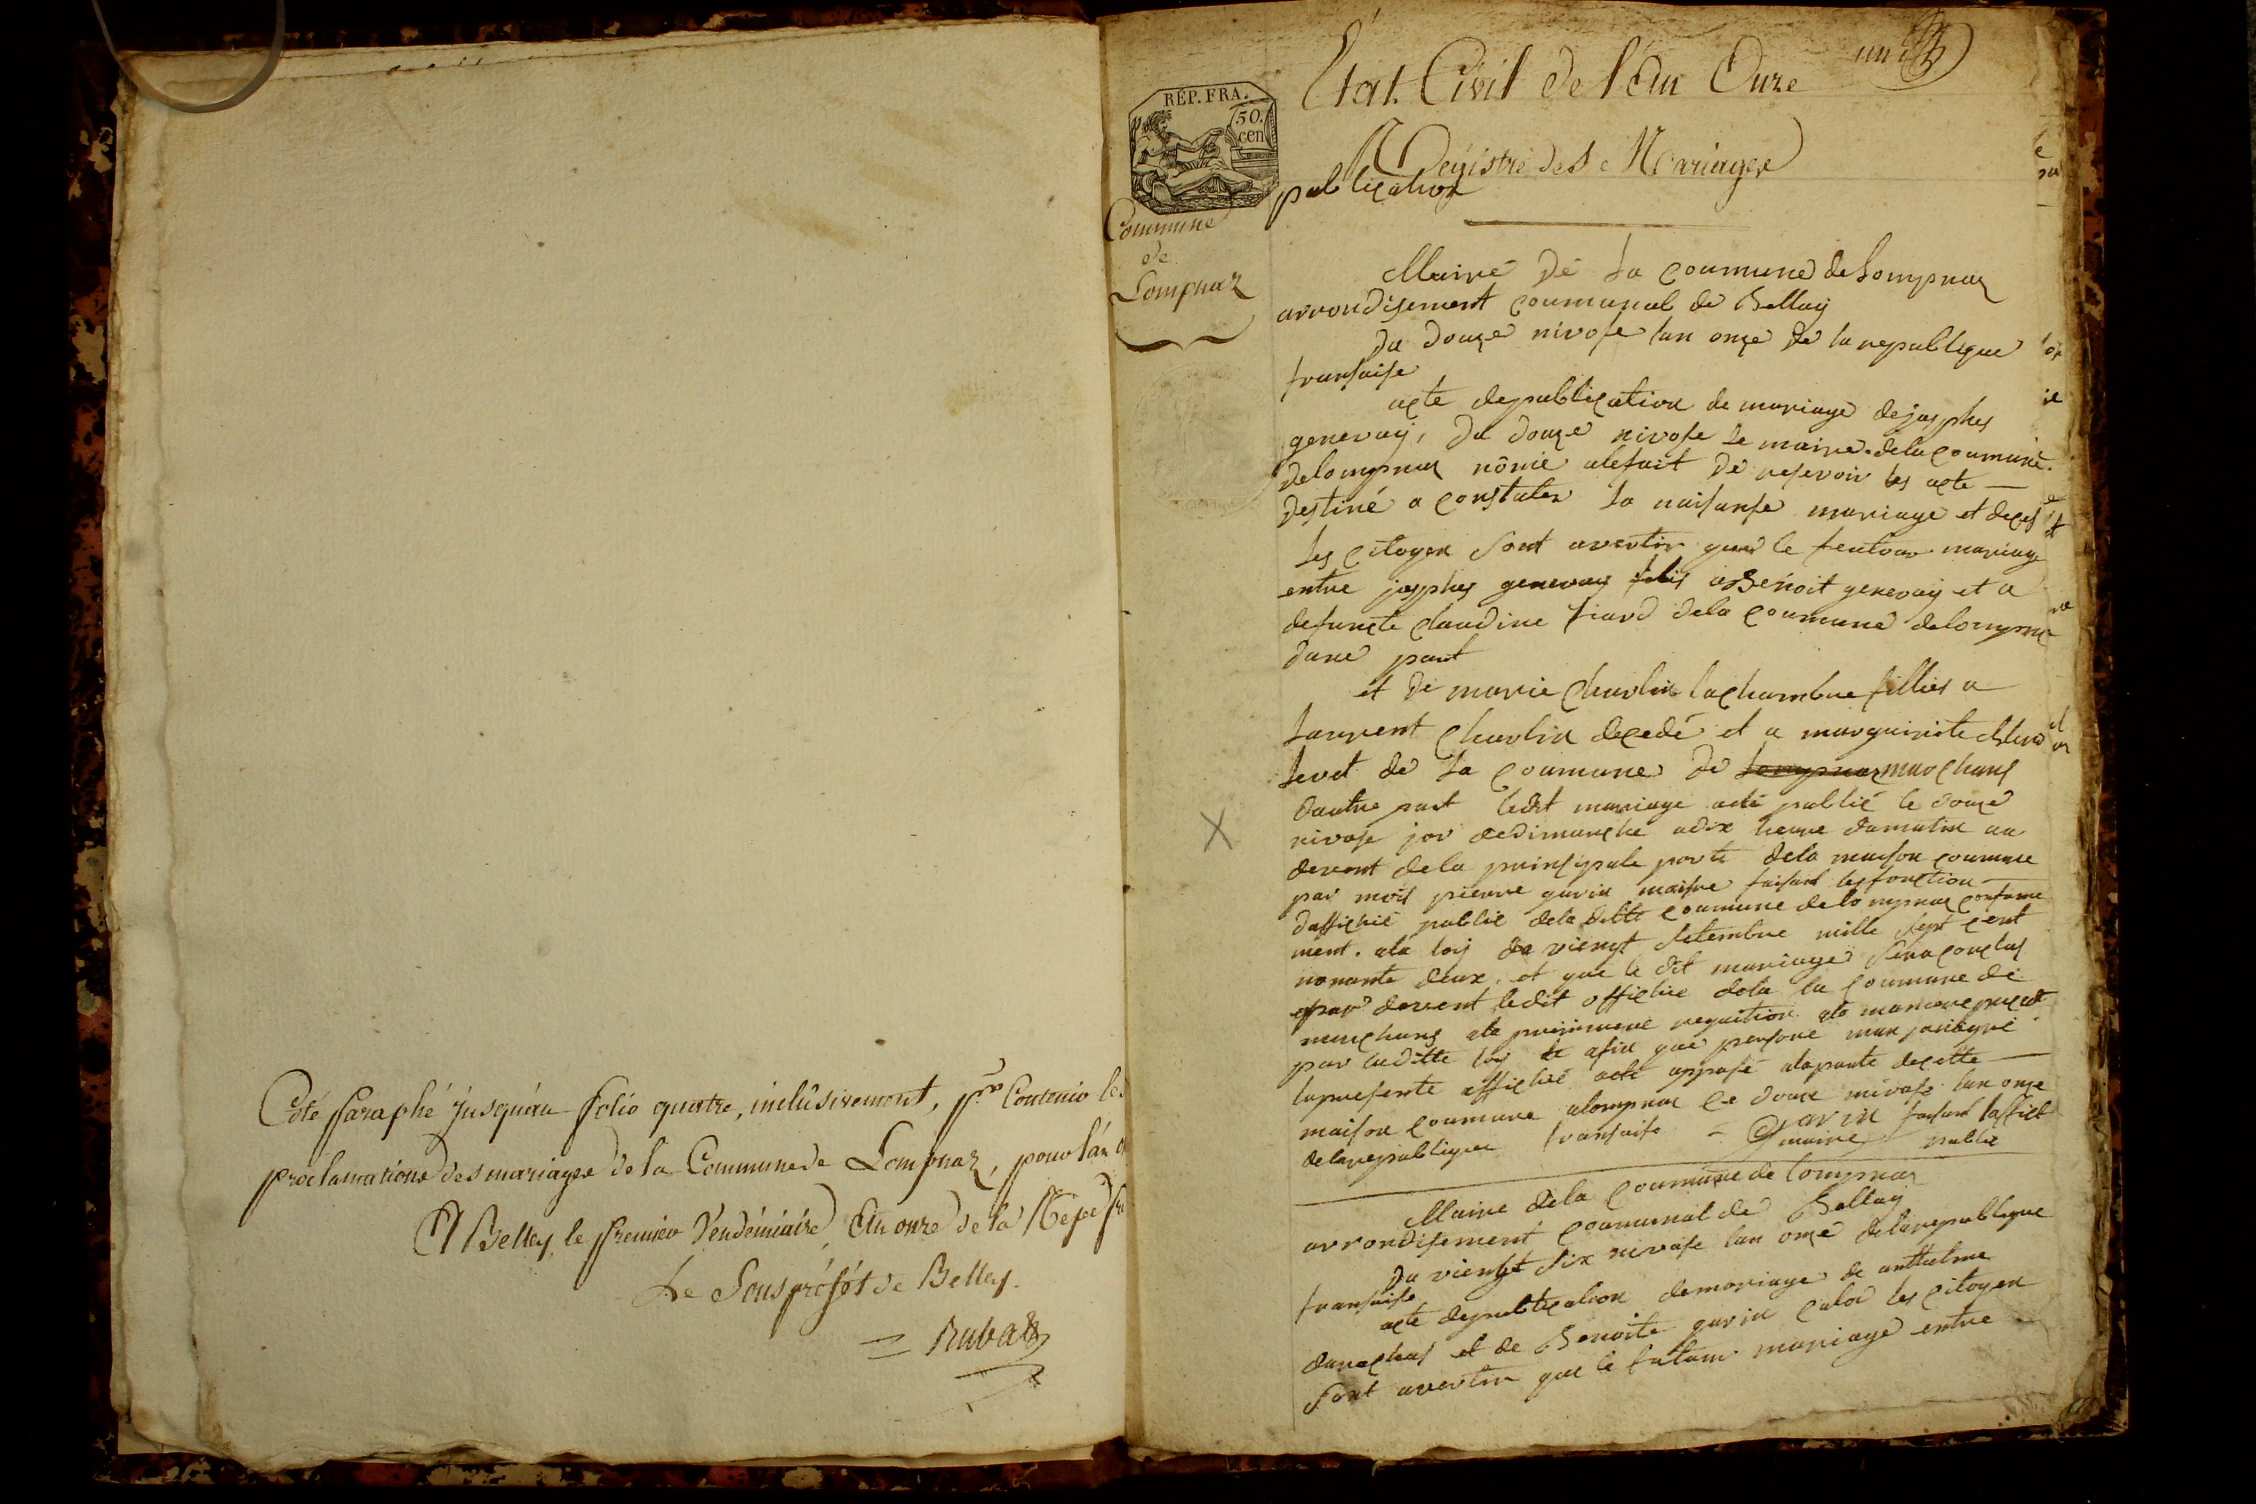 Coté paraphé jusqu'au folio quatre, inclusivement, pr Contenir les
proclamations des mariages de la Commune de Lompnaz, pour l'an
A Belley, le premier Vendémiaire, An onze de la Rép
Le Sous préfét de Belley.
= Rubat
un
Etat Civil de l'An Onze
RÉP. FRA.
50.
cen
Régistre des Mariages
publication
Commune
de
Lompnaz
Maire de la coumune de Lompnaz
arrondisement coumunal de Belley
Du douze nivose lan onze de la republique
fransaise
acte de publication de mariage de josephes
genevay, du douze nivose le maire de la coumune
de lompnaz nômé alefait de resevoir les acte
destiné a constater la naisanse mariage et deces
les citoyen sont avertir que le feutour mariage
entre josephes genevay a Benoit genevay et a
defuncte claudine fiard dela coumune delompna
dune part
et de marie charlin lachambre fillies a
laurent charlin decedé et a marguirite
de la coumune de lompnaz marchans
dautre part ledit mariage aété publié le douze
nivose jor dedimanche adix heure dumatin au
devent de la prinsipale porte dela maison coumune
par mois pierre gavin maire faisant les fonction
dofficié publié dela ditte coumune de lompnaz conforme
ment. ala loy du vienst setembre mille sept cent
nonante deux, et que le dit mariage sera conclus
par devent ledit officié dela la coumune de
marchans ala premiere requition
par laditte loy et afin que persone
lapresente affiché aété apposé alaporte decette
maison coumune alompnaz ce douze nivose lan onze
delarepublique fransaise = Gavin faisant laffisié
maire publié
Maire dela coumune de lompnaz
arrondisement coumunal de Belley
Du vienst six nivose lan onze delarepublique
fransaise
acte depublication demariage de anthelme
et de Benoite gavin les citoyen
sont avertir que le futaur mariage entre